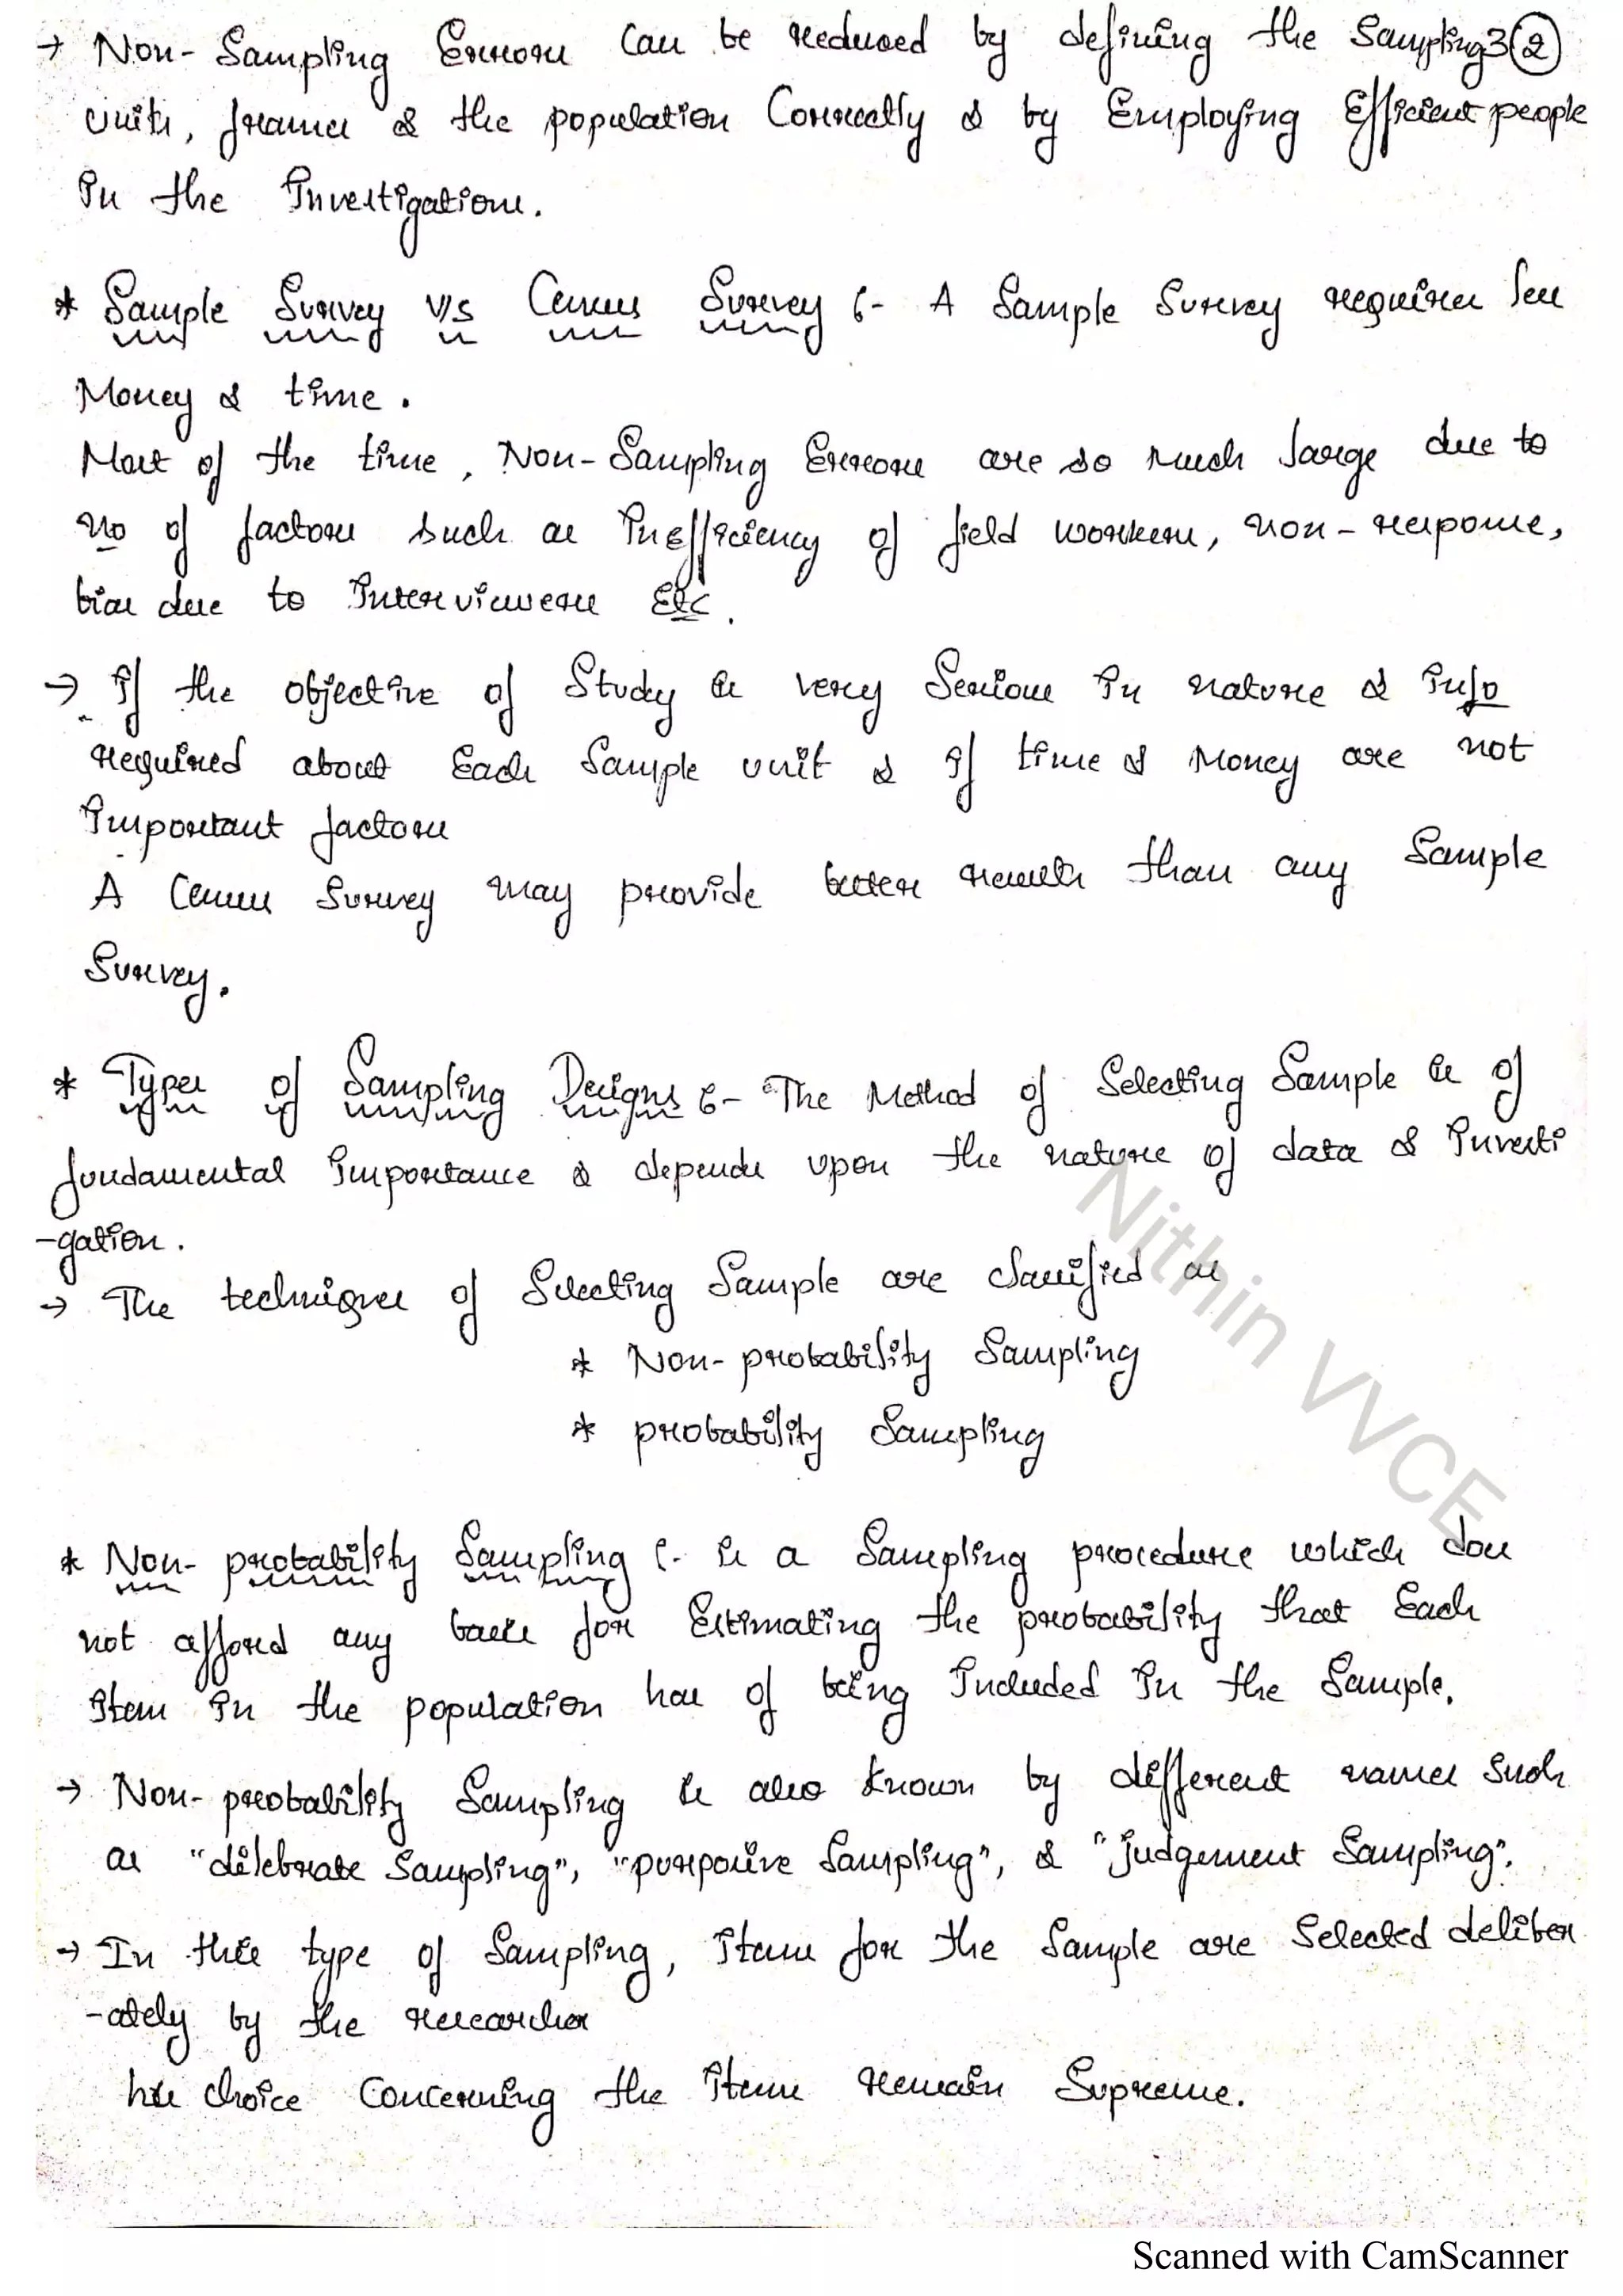 → Non-Sampling Errors can be reduced by defining the Sampling 3 2
units, frames & the population Correctly & by Employing Efficient people
in the Investigations.
* Sample Survey v/s Census Survey :- A Sample Survey requires less
Money & time.
Most of the time, Non-Sampling Errors are so much large due to
no of factors such as Inefficiency of field workers, non-response,
bias due to Interviewers Etc.
→ If the objective of Study is very Serious in nature & Info
required about Each Sample unit & if time & Money are not
Important factors
A Census Survey may provide better results than any Sample
Survey.
* Types of Sampling Designs :- The Method of Selecting Sample is of
fundamental Importance & depends upon the nature of data & Investi
-gation.
→ The techniques of Selecting Sample are classified as
* Non-probability Sampling
* probability Sampling
* Non-probability Sampling :- is a Sampling procedure which does
not afford any basis for Estimating the probability that Each
item in the population has of being Included in the Sample.
→ Non-probability Sampling is also known by different names Such
as "dilebrate Sampling", "purposive Sampling", & "judgement Sampling".
→ In this type of Sampling, items for the Sample are Selected deliber
-ately by the researcher
his choice Concerning the items remain Supreme.
Nithin VVCE
Scanned with CamScanner